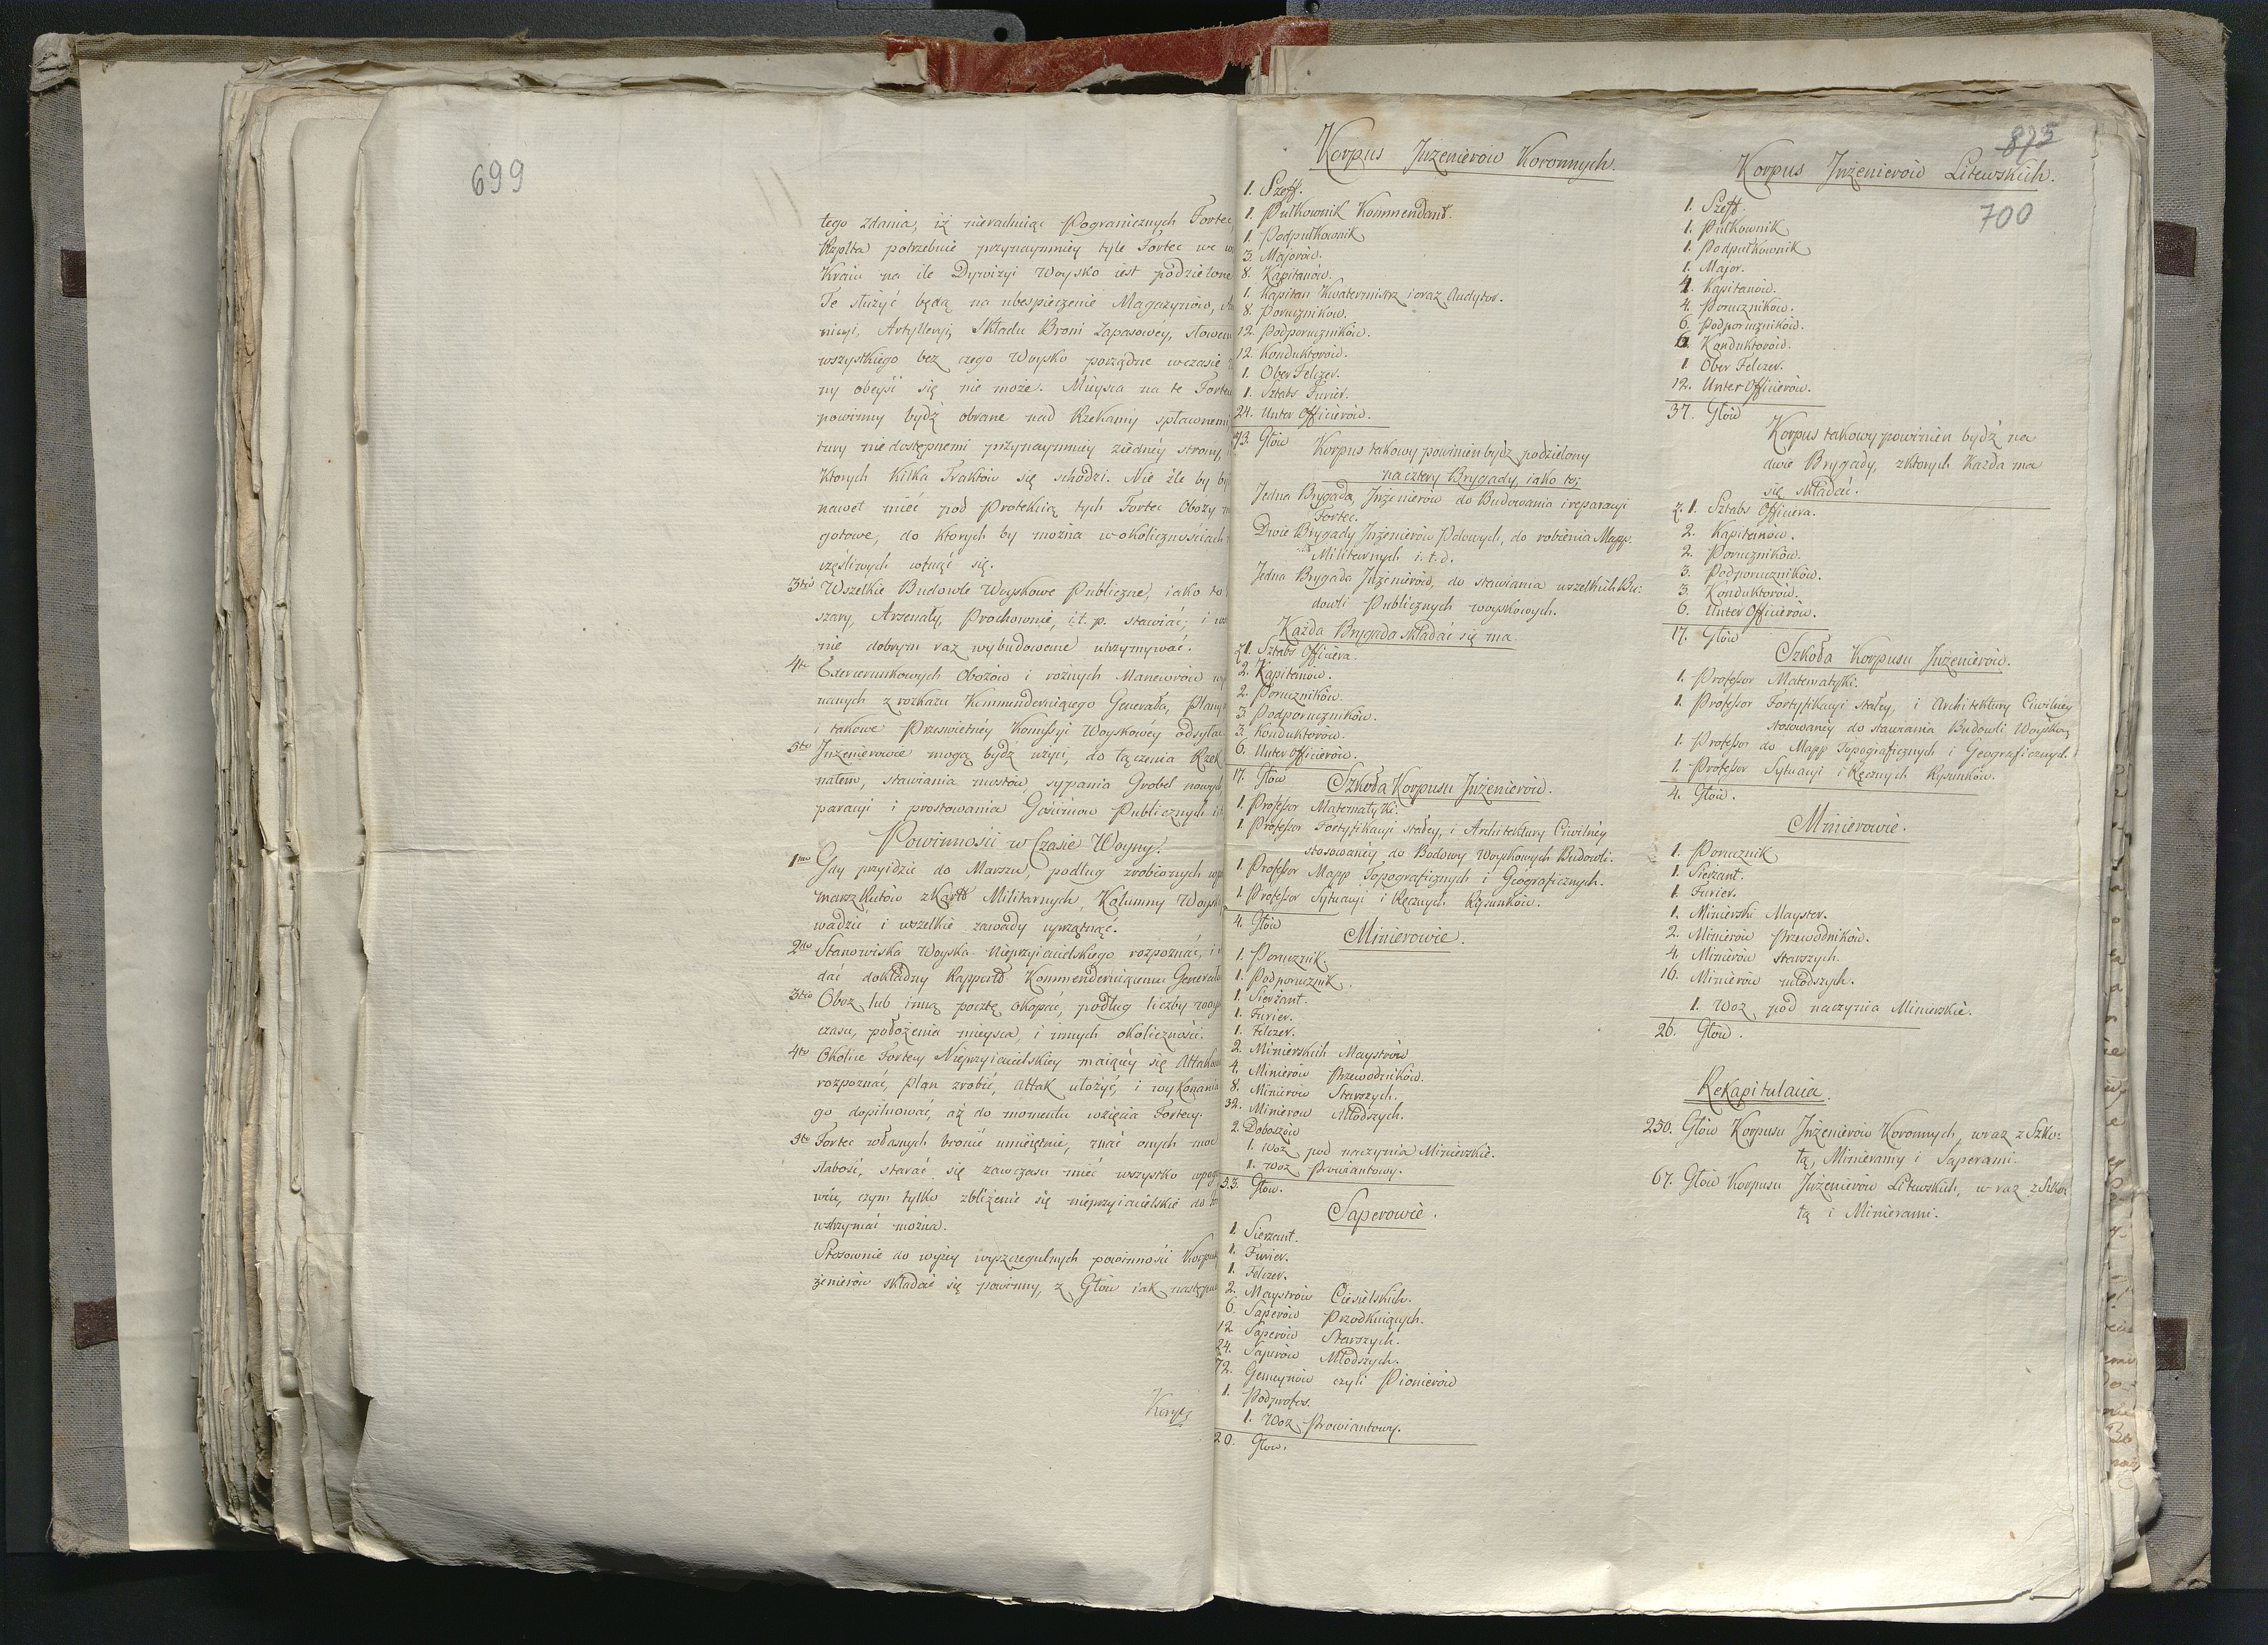 699
tego zdania, iż nieradniąc Pogranicznych Fortec
Rzplta potrzebuie przynaymniey tyle Fortec we
Kraiu na ile Dywizyi Woysko iest podzielone
Te służyć będą na ubespieczenie Magazynów,
nicyi, Artylleryi, Składu Broni Zapasowéy, słowem
wszystkiego bez czego Woysko porządne wczasie
ny obeyść się nie może. Mieysca na te Fortec
powinny bydź obrane nad Rzekamy spławnemi
tury niedostępnemi przynaymniey ziednéy strony,
których kilka Traktów się schodzi. Nie źle by
nawet mieć pod Protekcią tych Fortec Obozy
gotowe, do których by można w okolicznościach
częśliwych cofnąć się.
3tio Wszelkie Budowle Woyskowe Publiczne, iako to
szary, Arsenały, Prochownie, i.t.p. stawiać, i
nie dobrym raz wybudowane utrzymywać.
4to Exercerunkowych Obozów i rożnych Manewrów
nanych z rozkazu Kommenderuiącego Generała, Plany
i takowe Prześwietnéy Komissyi Woyskowéy odsyłać
5to Inżenierowie mogą bydź użyci, do łączenia Rzek
nałem, stawiania mostów, sypania Grobel nowych
paracyi i prostowania Gościńcow Publicznych
Powinności w Czasie Woyny.
1mo Gdy przyidzie do Marszu, podług zrobionych
marszRutów zKartt Militarnych, Kolumny Woysk
wadzić i wszelkie zawady uprzątnąć.
2do Stanowiska Woyska Nieprzyiacielskiego rozpoznać, i
dać dokładny Rapportt Kommenderuiącemu Generało
3tio Oboz lub inną pocztę okopać, podług liczby woy
czasu, położenia mieysca, i innych okoliczności.
4to Okolice Fortecy Nieprzyiacielskiey maiącéy się Attako
rozpoznać, plan zrobić, attak ułożyć, i wykonania
go dopilnować, aż do momentu wzięcia Fortecy.
5to Fortec własnych bronić umieiętnie, znać onych moc
słabość, starać się zawczasu mieć wszystko wpogo
wiu, czym tylko zbliżenie się nieprzyiacielskie do
wstrzymać można.
Stosownie do wyżéy wyszczegulnych powinności Korpus
żenierów składać się powinny, z Głów iak następu
Korpus
875
700
Korpus Inżenierów Koronnych.
1. Szeff.
1. Pułkownik Kommendant.
1. Podpułkownik
3. Majorów.
8. Kapitanów.
1. Kapitan Kwatermistrz i oraz Audytor.
8. Poruczników.
12. Podporuczników.
12. Konduktorów.
1. Ober Felczer.
1. Sztabs Furier.
24. Unter Officierów.
73. Głów
Korpus takowy powinien bydź podzielony
na cztery Brygady, iako to;
Jedna Brygada, Inżenierów do Budowania i reparacyi
Fortec.
Dwie Brygady Inżenierów Polowych, do robienia Mapp
Militarnych i.t.d.
Jedna Brygada Inżenierów, do stawiania wszelkich Bu:
dowli Publicznych woyskowych.
Każda Brygada składać się ma.
z 1. Sztabs Officiera.
2. Kapitanów.
2. Poruczników.
3. Podporuczników.
3. Konduktorów.
6. Unter Officierów.
17. Głów
Szkoła Korpusu Inżenierów.
1. Professor Matematyki.
1. Professor Fortyfikacyi stałey, i Architektury Ciwilnéy
stosowanéy do Bodowy Woyskowych Budowli.
1. Professor Mapp Topograficznych i Geograficznych.
1. Professor Sytuacyi i Ręcznych Rysunków.
4. Głów
Minierowie.
1. Porucznik.
1. Podporucznik.
1. Sierżant.
1. Furier.
1. Felczer.
2. Minierskich Maystrów
4. Minierów Przewodników.
8. Minierów Starszych.
32. Minierów Młodszych.
2. Doboszów
1. Woz pod naczynia Minierskie.
1. Woz Prowiantowy.
53. Głów.
Saperowie.
1. Sierżant.
1. Furier.
1. Felczer.
2. Maystrów Ciesielskich.
6. Saperów Przodkuiących.
12. Saperów Starszych.
24. Saperów Młodszych.
72. Gemeynów czyli Pionierów
1. Podprofos.
1. Woz Prowiantowy.
20. Głów.
Korpus Inżenierów Litewskich.
1. Szeff.
1. Pułkownik
1. Podpułkownik
1. Major.
4. Kapitanów.
4. Poruczników.
6. Podporuczników.
6. Konduktorów.
1 Ober Felczer.
12. Unter Officierów.
37. Głów
Korpus takowy powinien bydź na
dwie Brygady, z których każda ma
się składać.
z. 1. Sztabs Officiera.
2. Kapitanów.
2. Poruczników.
3. Podporuczników.
3. Konduktorów.
6. Unter Officierów.
17. Głów
Szkoła Korpusu Inżenierów.
1. Professor Matematyki.
1. Professor Fortyfikacyi stałey, i Architektury Ciwilnéy
stosowanéy do stawiania Budowli Woyskow
1. Professor do Mapp Topograficznych i Geograficznych.
1. Professor Sytuacyi i Ręcznych Rysunków.
4. Głów.
Minierowie.
1. Porucznik
1. Sierżant.
1. Furier.
1. Minierski Mayster.
2. Minierów Przewodników.
4. Minierów starszych.
16. Minierów młodszych.
1. Woz pod naczynia Minierskie.
26. Głów.
Rekapitulacia.
250. Głów Korpusu Inżenierów Koronnych, wraz z Szko:
łą, Minieramy i Saperami.
67. Głów Korpusu Inżenierów Litewskich, wraz z Szko:
łą i Minierami.